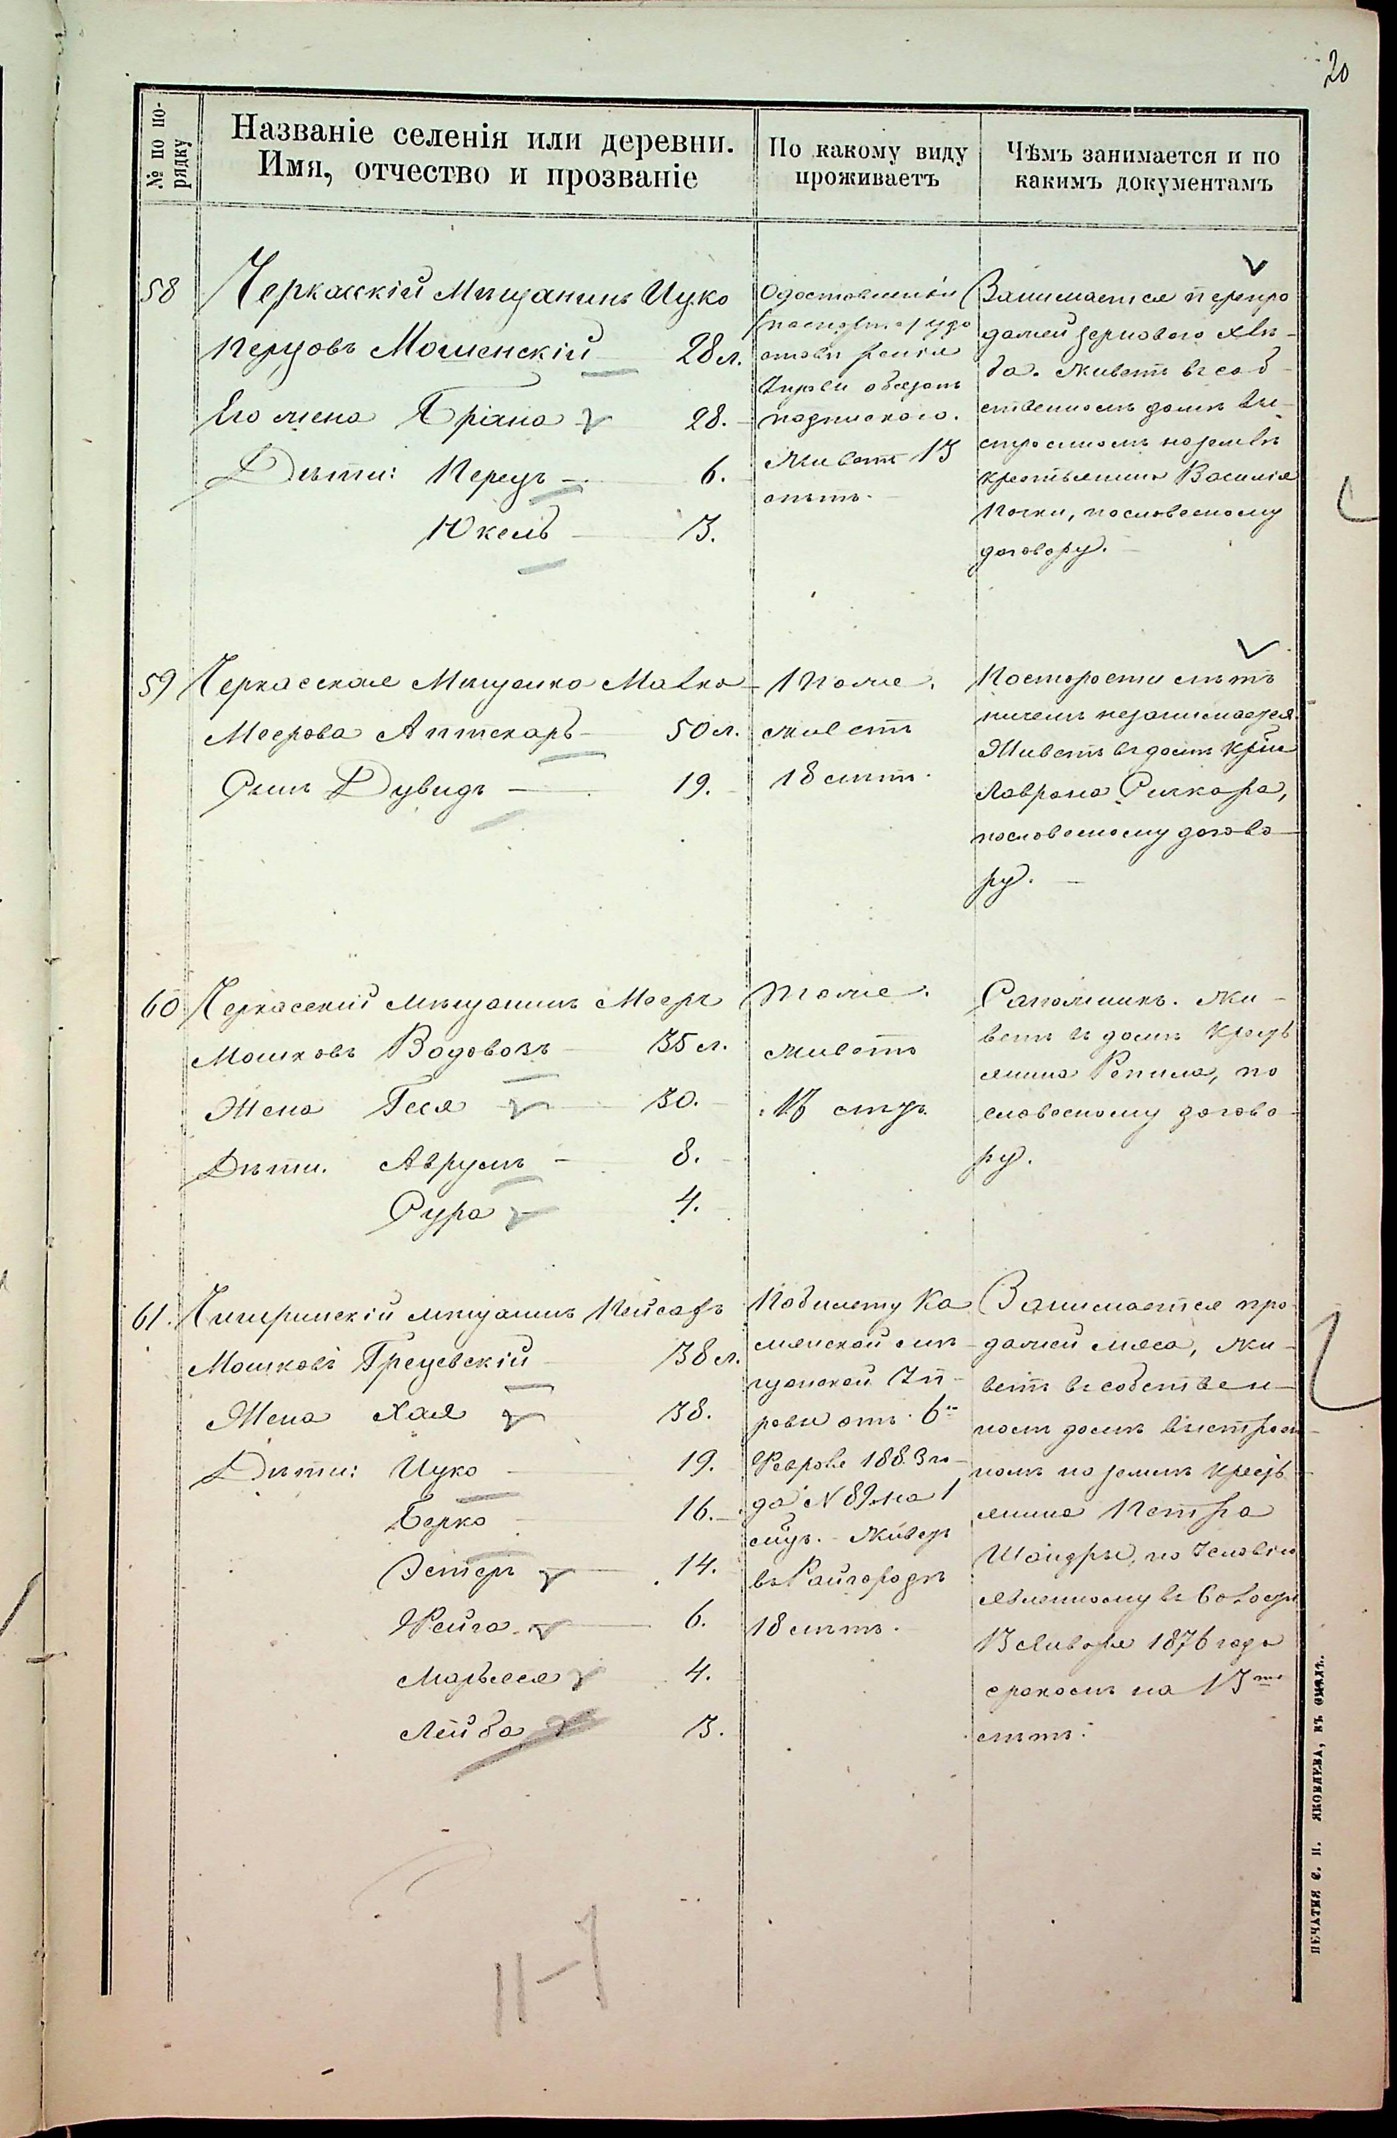 20
№ по по-
рядку
Названіе селенія или деревни.
Имя, отчество и прозваніе
По какому виду
проживаетъ
Чѣмъ занимается и по
какимъ документамъ
58
Черкасскій Мѣщанинъ Ицко
Перцовъ Мошенскій 28 л.
Его жена 28.
Дѣти: Перецъ — 6.
Юкель — 3.
живетъ 13
лѣтъ.
Занимается перепро
дажей зерноваго хлѣ-
ба. живетъ въ соб-
ственномъ домѣ вы-
строенномъ на землѣ
крестьянина Василія
по словесному
договору. —
59
Черкасская Мѣщанка Малка
Моерова Аптекарь — 50 л.
Сынъ Дувидъ — 19.
Тоже.
живетъ
18 лѣтъ.
По старости лѣтъ
ничемъ незанимается.
Живетъ въ домѣ
по словесному догово-
ру. —
60
Черкасский мѣщанинъ Моеръ
Мошковъ Водовозъ — 35 л.
Жена Геся — 30.
Дѣти. Аврумъ — 8.
Сура — 4.
Тоже.
живетъ
Сапожникъ. Жи-
ветъ въ домѣ Кресть
янина Репила, по
словесному догово-
ру.
61.
Чигиринскій мѣщанинъ Пейсахъ
Мошковъ 38 л.
Жена Хая 38.
Дѣти: Ицко — 19.
Берко — 16.
Эстеръ — 14.
Фейга — 6.
4.
Лейба 3.
По билету Ка
менской мѣ-
щанской Уп-
равы отъ 6го
Февраля 1883 го-
да N 89 на 1
Живетъ
въ Райгородѣ
18 лѣтъ.
Занимается про-
дажей мяса, жи-
ветъ въ собствен-
номъ домѣ выстроен-
номъ на землѣ Кресть-
янина Петра
по условію
13 Января 1876 года
срокомъ на 13ть
лѣтъ.
11-7
ПЕЧАТНЯ С. П. ЯКОВЛЕВА, ВЪ